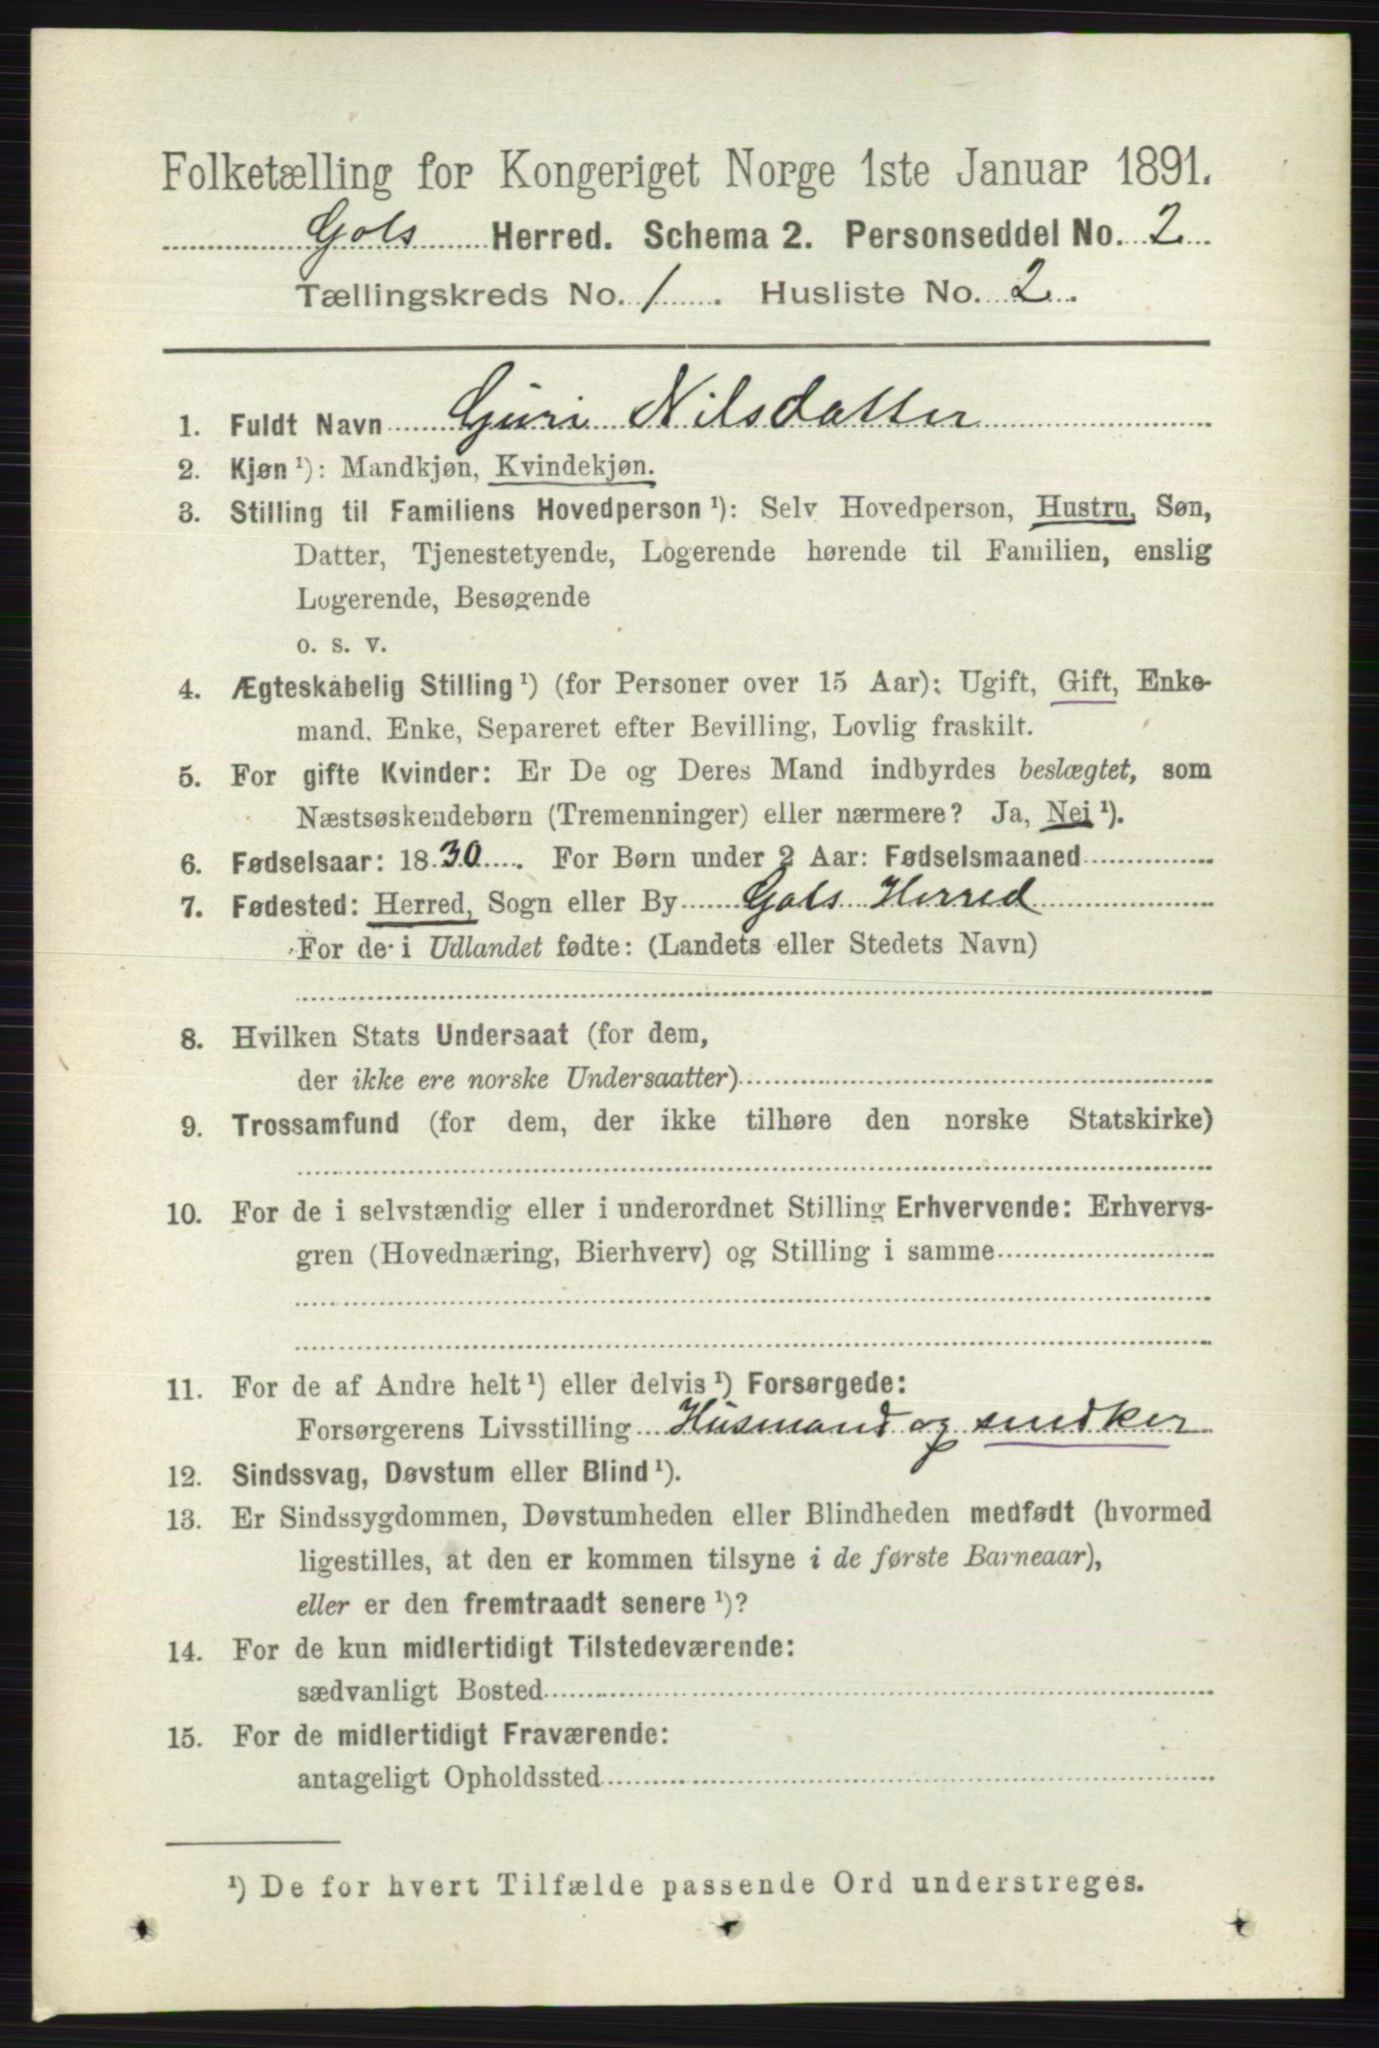 Folketælling for Kongeriget Norge 1ste Januar 1891.
Gols Herred. Schema 2. Personseddel No. 2
Tællingskreds No. 1. Husliste No. 2.
1. Fuldt Navn Guri Nilsdatter
2. Kjøn ¹): Mandkjøn, Kvindekjøn.
3. Stilling til Familiens Hovedperson ¹): Selv Hovedperson, Hustru, Søn,
Datter, Tjenestetyende, Logerende hørende til Familien, enslig
Logerende, Besøgende
o. s. v.
4. Ægteskabelig Stilling ¹) (for Personer over 15 Aar): Ugift, Gift, Enke-
mand. Enke, Separeret efter Bevilling, Lovlig fraskilt.
5. For gifte Kvinder: Er De og Deres Mand indbyrdes beslægtet, som
Næstsøskendebørn (Tremenninger) eller nærmere? Ja, Nei ¹).
6. Fødselsaar: 1830. For Børn under 2 Aar: Fødselsmaaned
7. Fødested: Herred, Sogn eller By Gols Herred
For de i Udlandet fødte: (Landets eller Stedets Navn)
8. Hvilken Stats Undersaat (for dem,
der ikke ere norske Undersaatter)
9. Trossamfund (for dem, der ikke tilhøre den norske Statskirke)
10. For de i selvstændig eller i underordnet Stilling Erhvervende: Erhvervs-
gren (Hovednæring, Bierhverv) og Stilling i samme
11. For de af Andre helt ¹) eller delvis ¹) Forsørgede:
Forsørgerens Livsstilling Husmand og snedker
12. Sindssvag, Døvstum eller Blind ¹).
13. Er Sindssygdommen, Døvstumheden eller Blindheden medfødt (hvormed
ligestilles, at den er kommen tilsyne i de første Barneaar),
eller er den fremtraadt senere ¹)?
14. For de kun midlertidigt Tilstedeværende:
sædvanligt Bosted
15. For de midlertidigt Fraværende:
antageligt Opholdssted
¹) De for hvert Tilfælde passende Ord understreges.